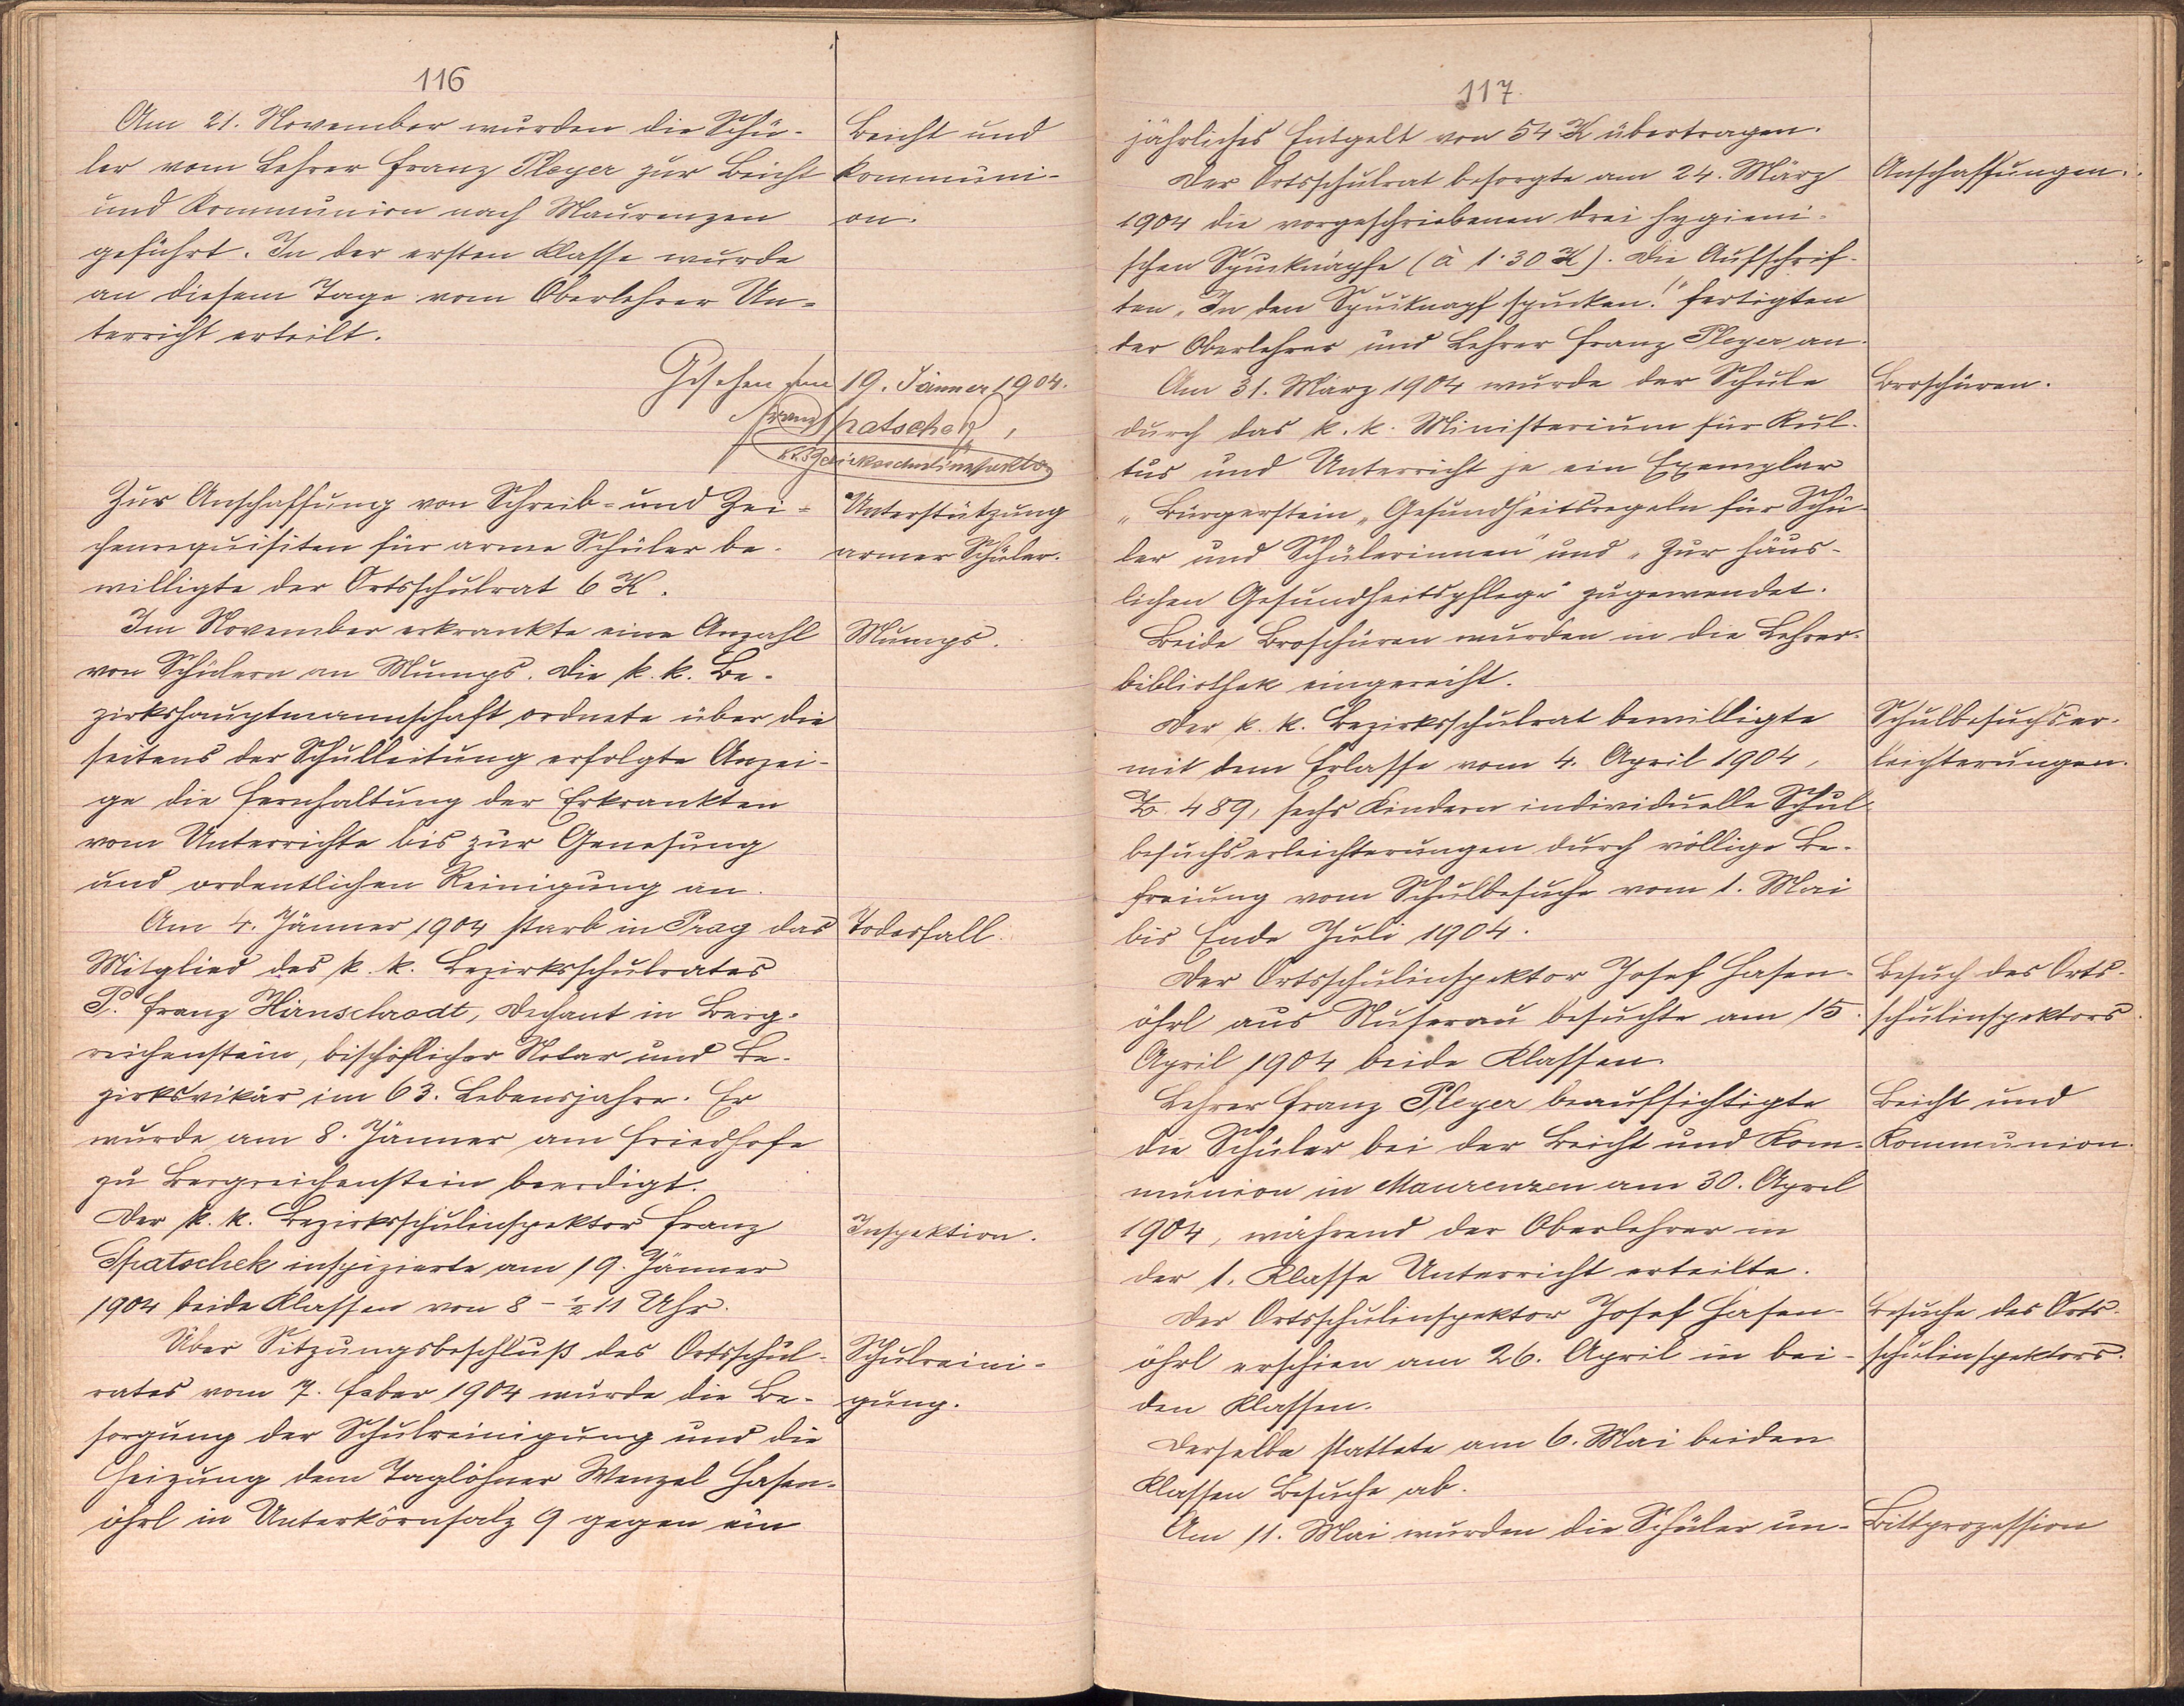 116
Am 21. November wurden die Schü-
ler vom Lehrer Franz Pleyer zur Beicht
und Kommunion nach Maurenzen
geführt. In der ersten Klasse wurde
an diesem Tage vom Oberlehrer Un-
terricht erteilt.
Beicht und
Kommuni-
on.
Gesehen am 19. Jänner 1904.
Franz Spatschek,
k.k. Bezirksschulinspektor
Zur Anschaffung von Schreib- und Zei-
chenrequisiten für arme Schüler be-
willigte der Ortsschulrat 6 K.
Unterstützung
armer Schüler.
Im November erkrankte eine Anzahl
von Schülern an Mumps. Die k. k. Be-
zirkshauptmannschaft ordnete über die
seitens der Schulleitung erfolgte Anzei-
ge die Fernhaltung der Erkrankten
vom Unterrichte bis zur Genesung
und ordentlichen Reinigung an.
Mumps.
Am 4. Jänner 1904 starb in Prag das
Mitglied des k. k. Bezirksschulrates
P. Franz Hirnschrodt, Dechant in Berg-
reichenstein, bischöflicher Notar und Be-
zirksvikär im 63. Lebensjahre. Er
wurde am 8. Jänner am Friedhofe
zu Bergreichenstein beerdigt.
Todesfall.
Der k. k. Bezirksschulinspektor Franz
Spatschek inspizierte am 19. Jänner
1904 beide Klassen von 8 - ½ 11 Uhr.
Inspektion.
Über Sitzungsbeschluß des Ortsschul-
rates vom 7. Feber 1904 wurde die Be-
sorgung der Schulreinigung und die
Heizung dem Taglöhner Wenzel Hasen-
öhrl in Unterkörnsalz 9 gegen ein
Schulreini-
gung.
117.
jährliches Entgelt von 54 K übertragen.
Der Ortsschulrat besorgte am 24. März
1904 die vorgeschriebenen drei hygieni-
schen Spucknäpfe (à 1·30 K). Die Aufschrif-
ten „In den Spucknapf spucken!" fertigten
der Oberlehrer und Lehrer Franz Pleyer an.
Anschaffungen.
Am 31. März 1904 wurde der Schule
durch das k. k. Ministerium für Kul-
tus und Unterricht je ein Exemplar
„Bürgerstein „Gesundheitsregeln für Schü-
ler und Schülerinnen" und „Zur häus-
lichen Gesundheitspflege" zugewendet.
Beide Broschüren wurden in die Lehrer-
bibliothek eingereiht.
Broschüren.
Der k. k. Bezirksschulrat bewilligte
mit dem Erlasse vom 4. April 1904,
Z. 489, sechs Kindern individuelle Schul-
besuchserleichterungen durch völlige Be-
freiung vom Schulbesuche vom 1. Mai
bis Ende Juli 1904.
Schulbesuchser-
leichterungen.
Der Ortsschulinspektor Josef Hasen-
öhrl aus Nuserau besuchte am 15.
April 1904 beide Klassen.
Besuch des Orts-
schulinspektors.
Lehrer Franz Pleyer beaufsichtigte
die Schüler bei der Beicht und Kom-
munion in Maurenzen am 30. April
1904, während der Oberlehrer in
der 1. Klasse Unterricht erteilte.
Beicht und
Kommunion.
Der Ortsschulinspektor Josef Hasen-
öhrl erschien am 26. April in bei-
den Klassen.
Derselbe stattete am 6. Mai beiden
Klassen Besuche ab.
Besuche des Orts-
schulinspektors.
Am 11. Mai wurden die Schüler un-
Bittprozession